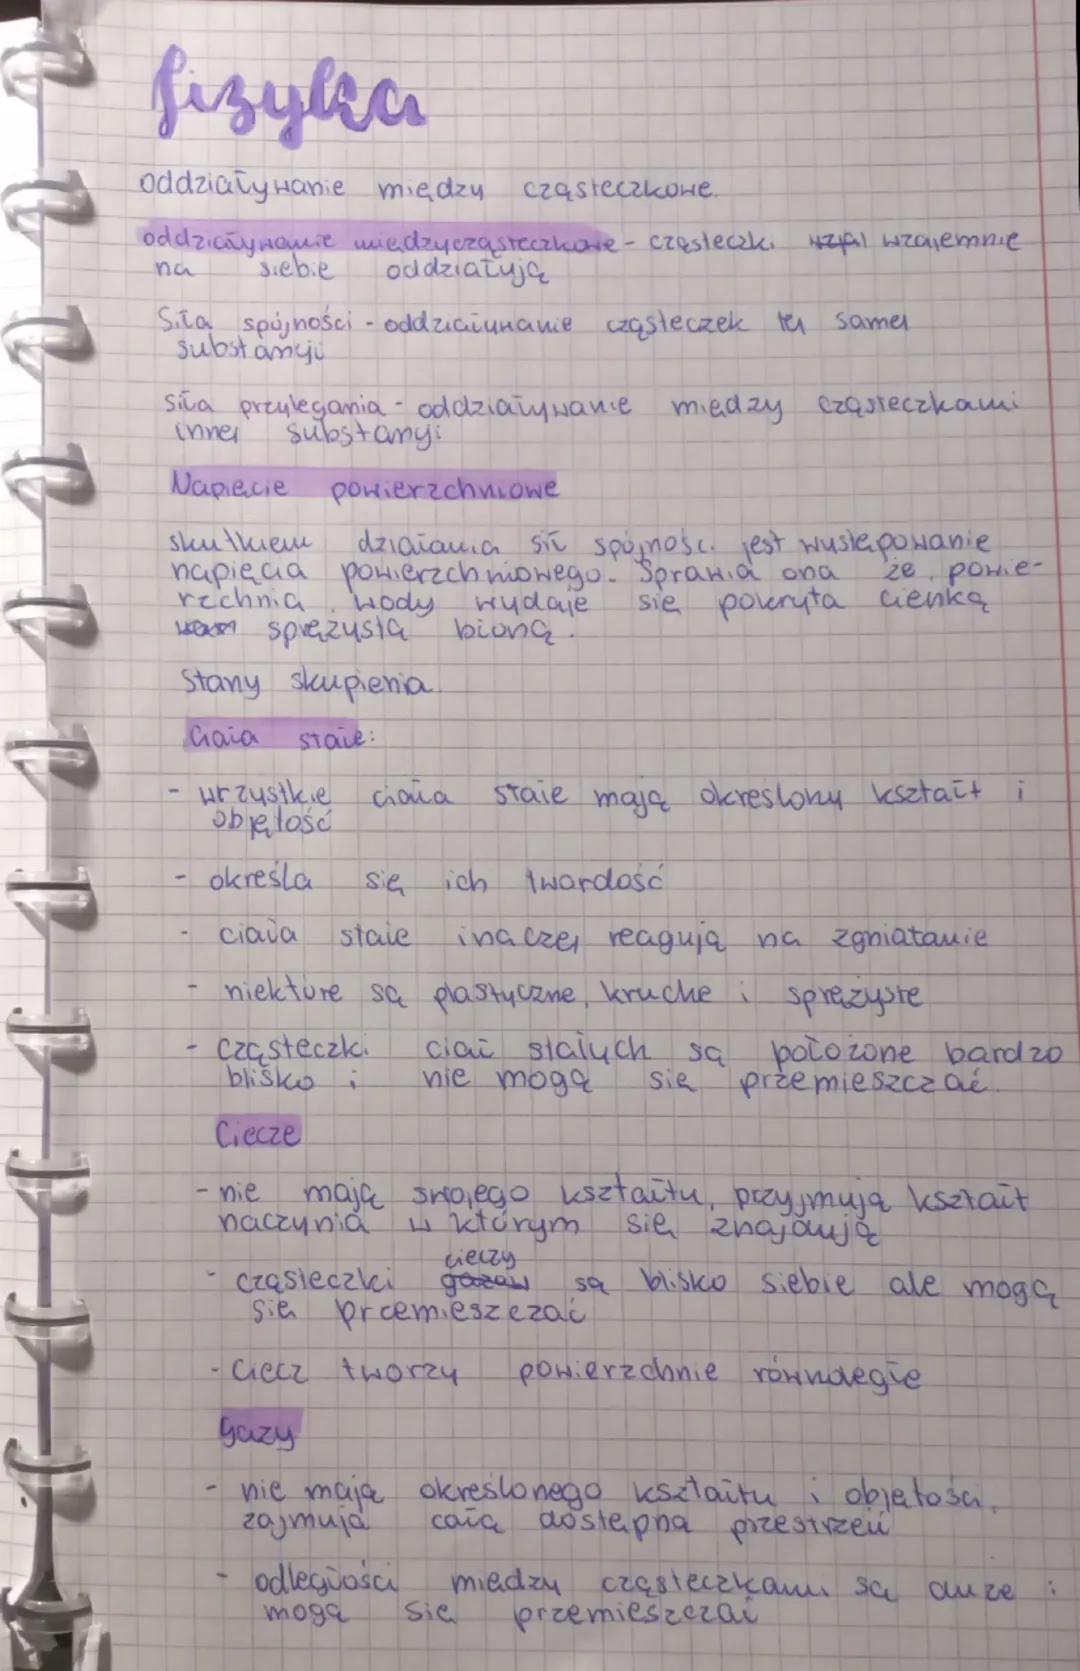 fizyka
oddziaływanie między cząsteczkowe.
oddziaływanie międzycząsteczkowe - cząsteczki wzajemnie
na siebie oddziałują
Siła spójności - oddziaływanie cząsteczek tej samej
substancji
siła przylegania - oddziaływanie między cząsteczkami
innej substancji
Napięcie powierzchniowe
skutkiem działania sił spójności jest wystepowanie
napięcia powierzchniowego. Sprawia ona że powie-
rzchnia wody wydaje się pokryta cienką
sprężystą błoną.
Stany skupienia.
Ciała stałe:
- wrzystkie ciała stałe mają określony kształt i
objętość
- określa się ich twardość
- ciała stałe inaczej reagują na zgniatanie
- niektóre są plastyczne, kruche i sprężyste
- cząsteczki ciał stałych są położone bardzo
blisko i nie mogą się przemieszczać.
Ciecze
- nie mają swojego kształtu, przyjmują kształt
naczynia w którym się znajdują
- cząsteczki cieczy gazów są blisko siebie ale mogą
się przemieszczać
- Ciecz tworzy powierzchnie równoległe
Gazy
- nie mają określonego kształtu i objętości,
zajmują całą dostępną przestrzeń
- odległości między cząsteczkami są duże i
mogą się przemieszczać